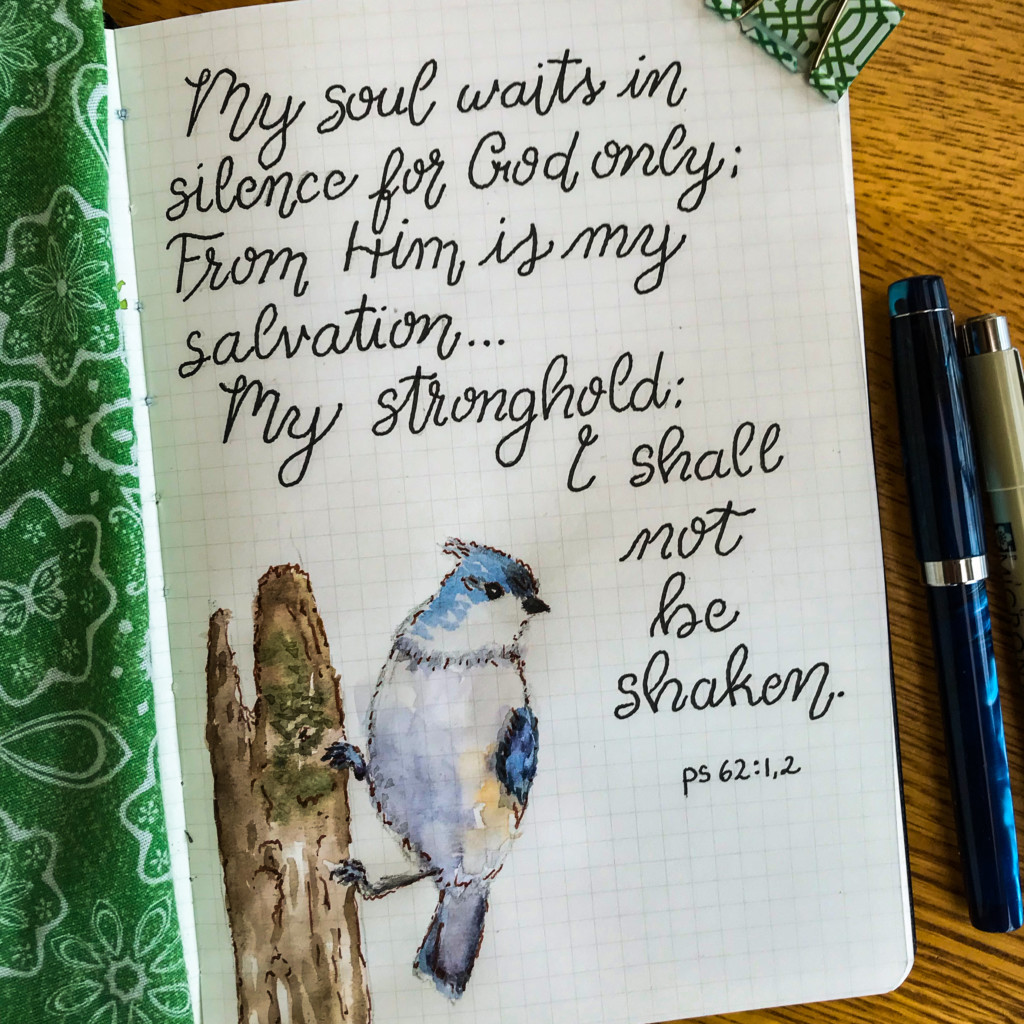 My soul waits in
silence for God only;
From Him is my
salvation...
My stronghold:
I shall
not
be
shaken.
ps 62:1,2